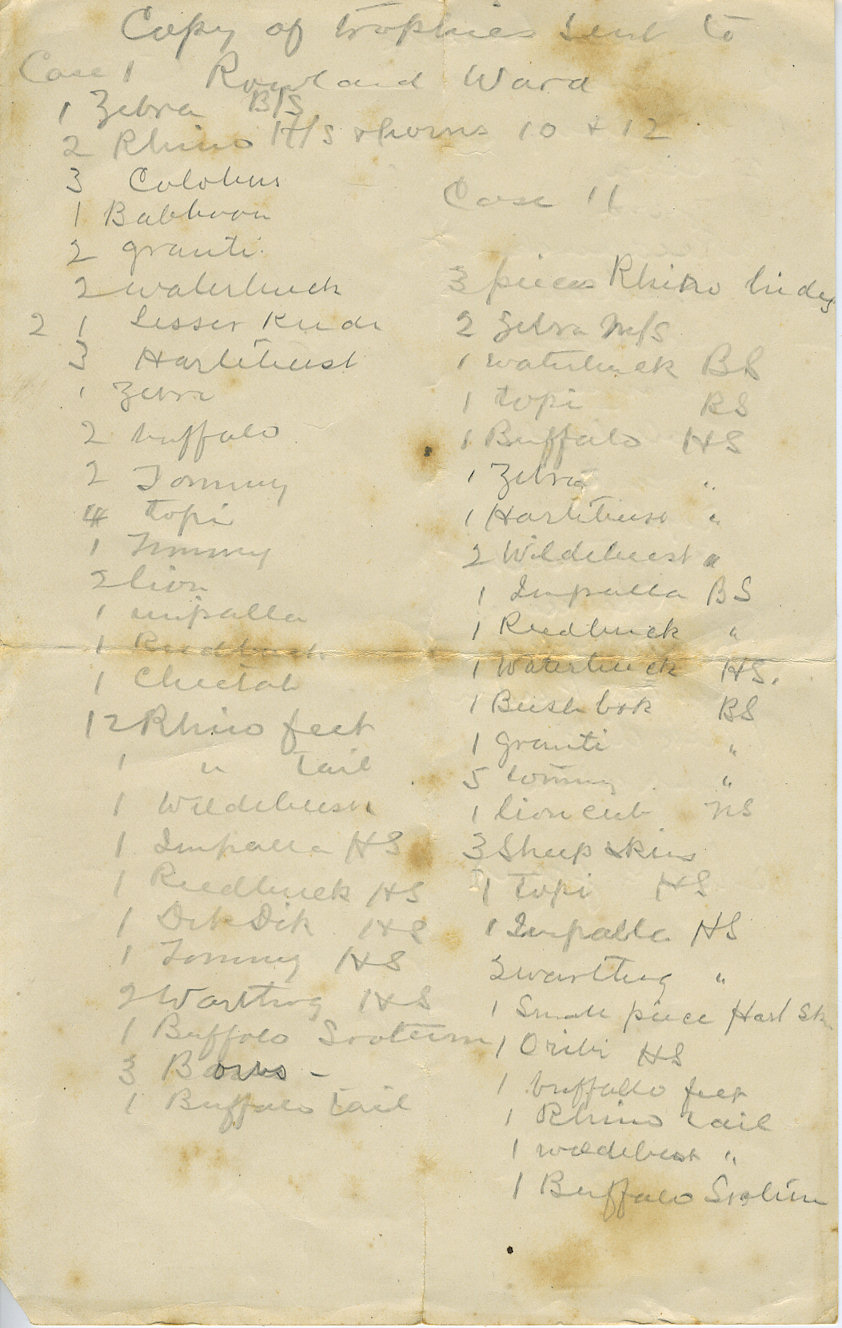 Copy of trophies sent to
Case 1 Rowland Ward
1 Zebra B/S
2 Rhino H/S & horns 10 + 12
3 Colobus
1 Babboon
2 granti
2 waterbuck
2 1 Lesser Kudu
3 Hartibeest
1 Zebra
2 buffalo
2 Tommy
4 topi
1 Tommy
2 lion
1 impalla
1 Reedbuck
1 Cheetah
12 Rhino feet
1 " tail
1 Wildebeest
1 Impalla HS
1 Reedbuck HS
1 Dik Dik HS
1 Tommy HS
2 Warthog HS
1 Buffalo Scotum
3
1 Buffalo tail
Case 11
3 pieces Rhino hides
2 Zebra
1 waterbuck BS
1 topi BS
1 Buffalo HS
1 Zebra "
1 Hartibeest "
2 Wildebeest "
1 Impalla BS
1 Reedbuck "
1 Waterbuck HS.
1 Bushbok BS
1 granti "
5 tommy "
1 lion cub
3 Sheep skins
1 topi HS
1 Impalla HS
warthog "
1 Small piece Hart Sk
1 Oribi HS
1 buffallo feet
1 Rhino tail
1 wildebeest "
1 Buffalo